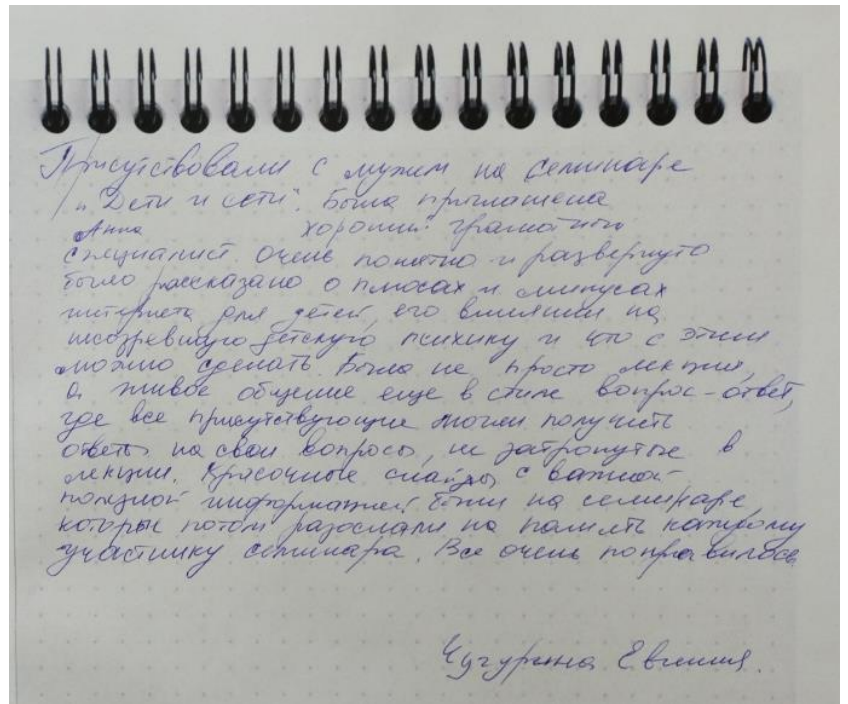 Присутствовали с мужем на семинаре
"Дети и сети". Была приглашена
Анна хороший грамотный
специалист. Очень понятно и развернуто
было рассказано о плюсах и минусах
интернета для детей, его влиянии на
несозревшую детскую психику и что с этим
можно сделать. Была не просто лекция,
а живое общение еще в стиле вопрос-ответ,
где все присутствующие могли получить
ответы на свои вопросы, не затронутые в
лекции. Красочные слайды с важной
полезной информацией были на семинаре,
которые потом разослали на память каждому
участнику семинара. Все очень понравилось
Чугурина Евгения.